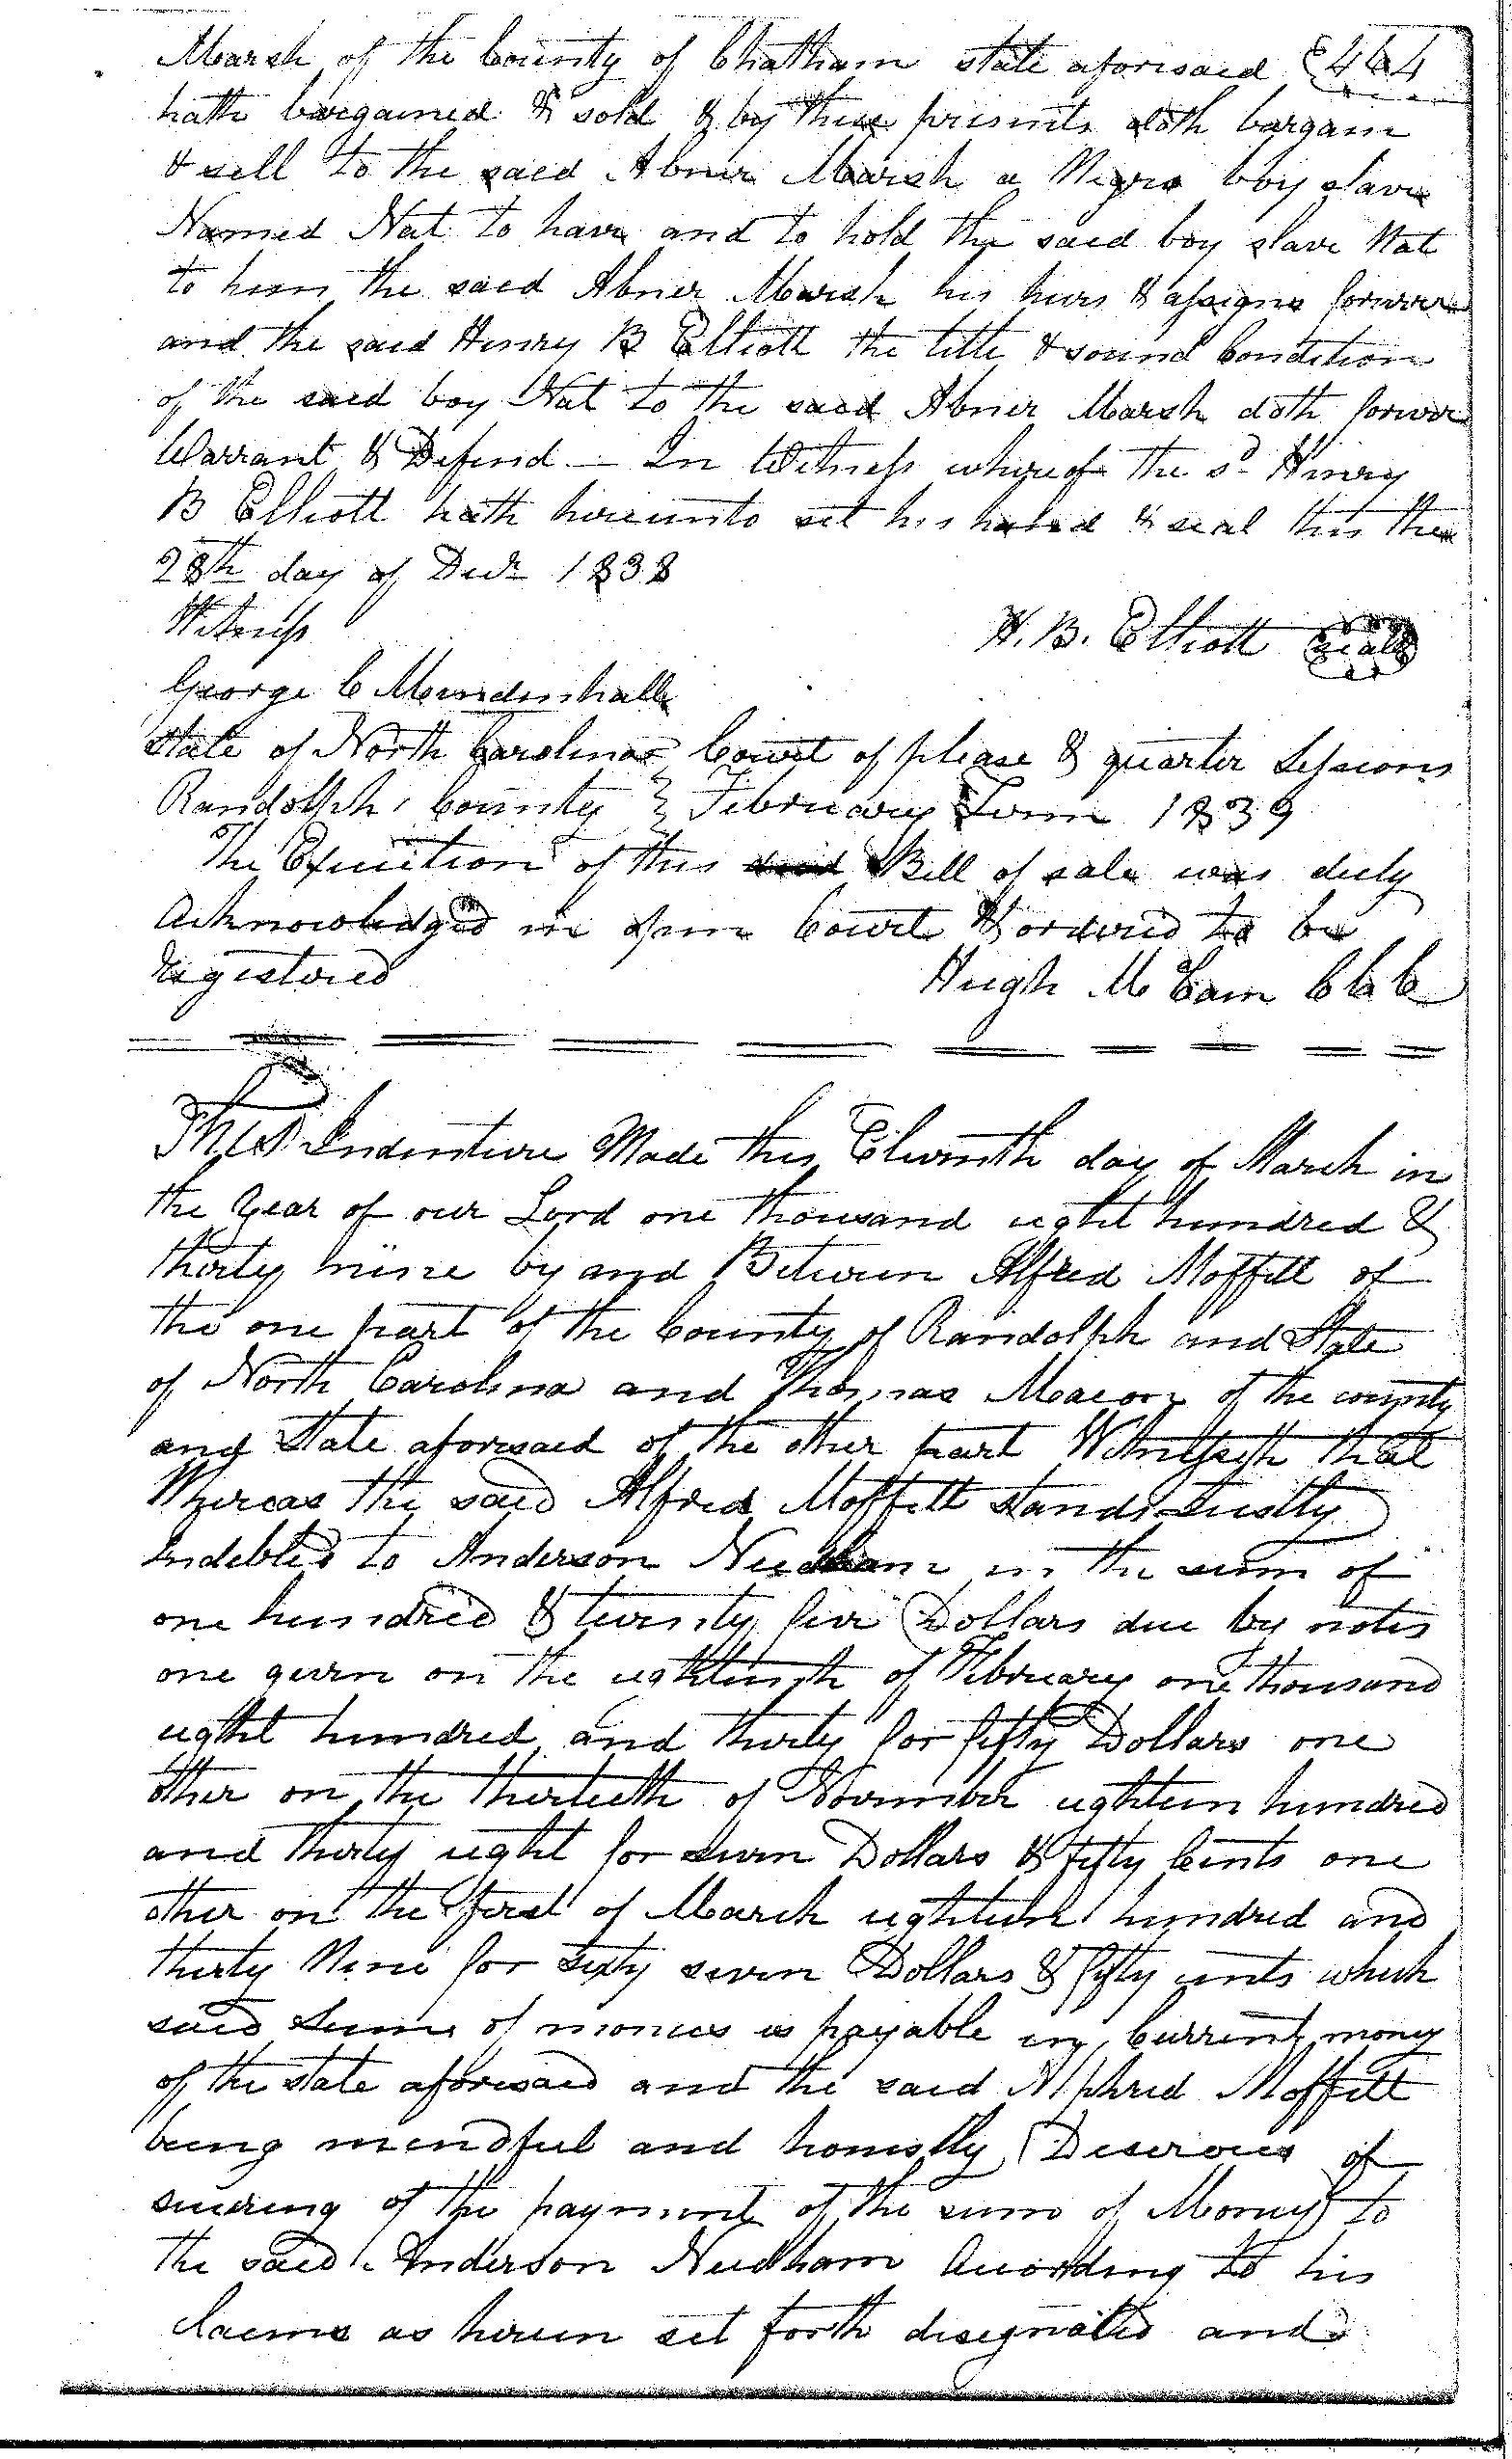 Marsh of the County of Chatham state aforesaid 464
hath bargained & sold & by these presents doth bargain
& sell to the said Abner Marsh a Negro boy slave
Named Nat to have and to hold the said boy slave Nat
to him the said Abner Marsh his heirs & assigns forever
and the said Henry B Elliott the title & sound Condition
of the said boy Nat to the said Abner Marsh doth forever
Warrant & Defend — In Witness whereof the sd Henry
B Elliott hath hereunto set his hand & seal this the
28th day of Decr 1838
Witness
H. B. Elliott seal
George C Mendenhall
State of North Carolina Court of please & quarter Sessions
Randolph County } February Term 1839
The Execution of this Bill of sale was duly
Acknowledged in open Court & ordered to be
registered
Hugh McCain CCC
This Indenture Made this Eleventh day of March in
the Year of our Lord one thousand eight hundred &
thirty nine by and Between Alfred Moffitt of
the one part of the County of Randolph and State
of North Carolina and Thomas Macon of the county
and State aforesaid of the other part Witnesseth that
Whereas the said Alfred Moffitt stands Justly
Indebted to Anderson Needham in the sum of
one hundred & twenty five Dollars due by notes
one given on the eighteenth of February one thousand
eight hundred and thirty for fifty Dollars one
other on the thirtieth of November eighteen hundred
and thirty eight for seven Dollars & fifty Cents one
other on the first of March eighteen hundred and
thirty Nine for sixty seven Dollars & fifty cents which
said sum of monies is payable in Current money
of the state aforesaid and the said Alphred Moffitt
being mindful and honestly Deserous of
securing of the payment of the sum of Money to
the said Anderson Needham According to his
claims as herein set forth designated and